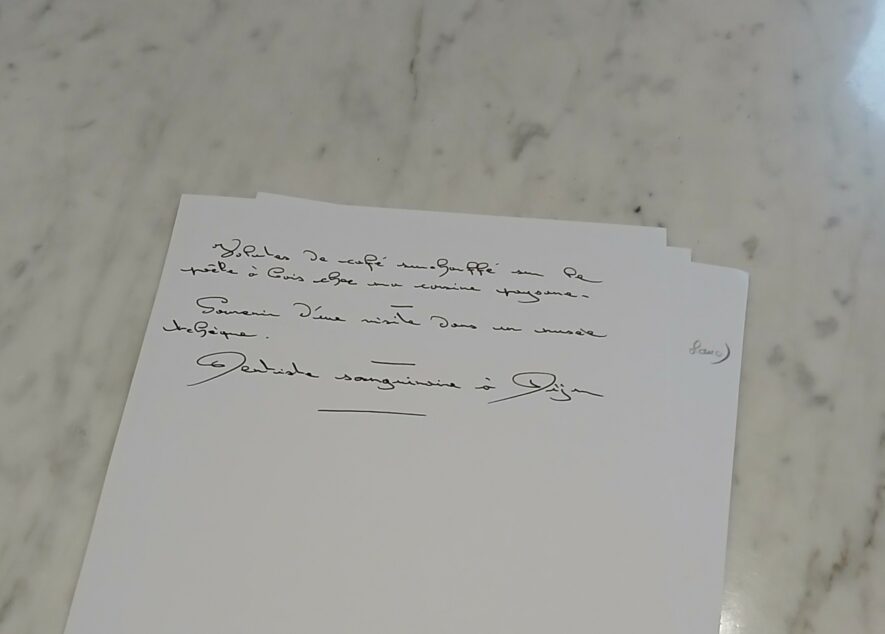 Volutes de café surchauffé sur le
poêle à bois chez ma cousine paysane.
Souvenir d'une visite dans un musée
tchèque.
Dentiste sanguinaire à Dijon